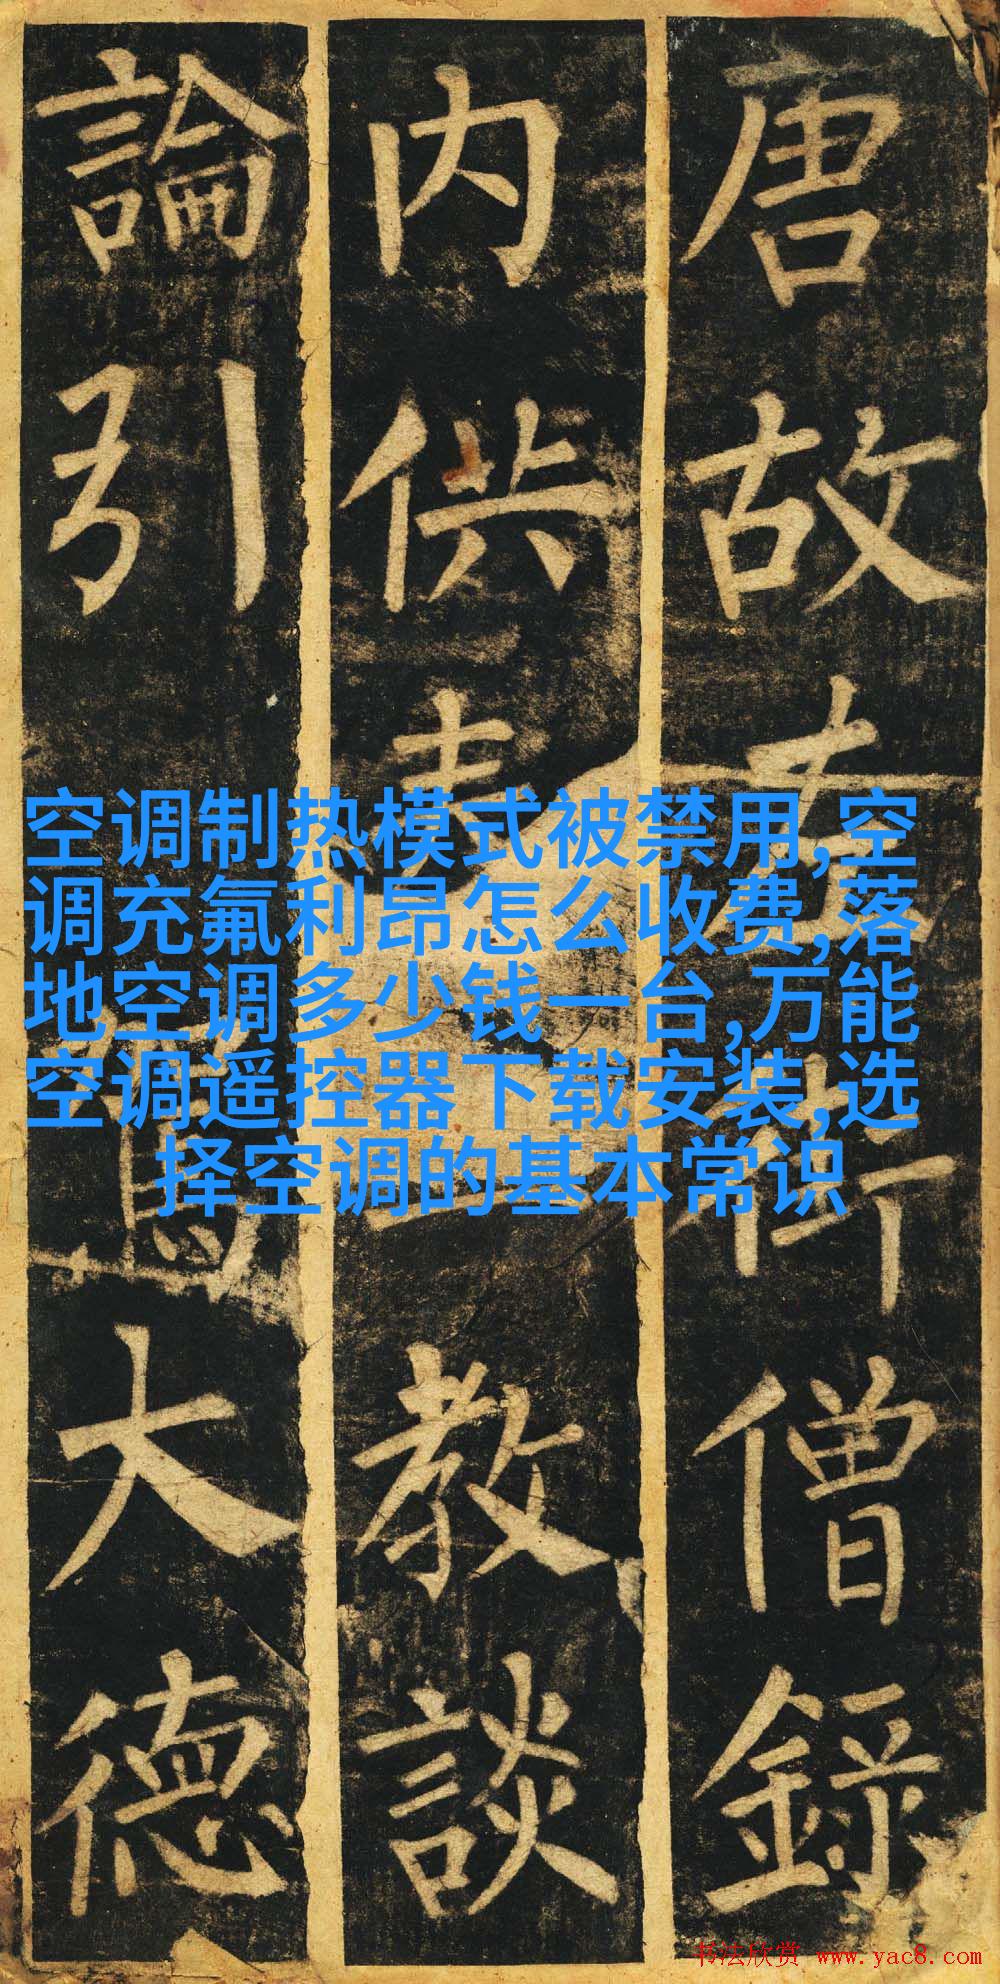 唐故左街僧錄
内供教談
論引大德
空调制热模式被禁用,空
调充氟利昂怎么收费,落
地空调多少钱一台,万能
空调遥控器下载安装,选
择空调的基本常识
书法欣赏 www.yac8.com